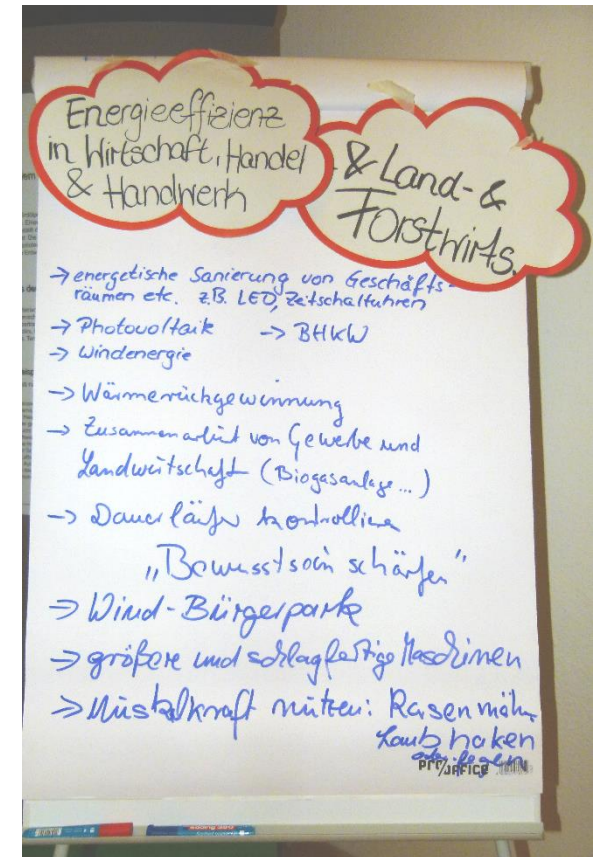 Energieeffizienz
in Wirtschaft, Handel
& Handwerk
& Land- &
Forstwirts.
→ energetische Sanierung von Geschäfts-
räumen etc. z.B. LED, Zeitschaltuhren
→ Photovoltaik → BHKW
→ Windenergie
→ Wärmerückgewinnung
→ Zusammenarbeit von Gewerbe und
Landwirtschaft (Biogasanlage...)
→ Dauerläufer kontrollieren
„Bewusstsein schärfen"
→ Wind-Bürgerparke
→ größere und schlagfertige Maschinen
→ Muskelkraft nutzen: Rasenmäher
Laub haken
oder fegen
PRO/OFFICE